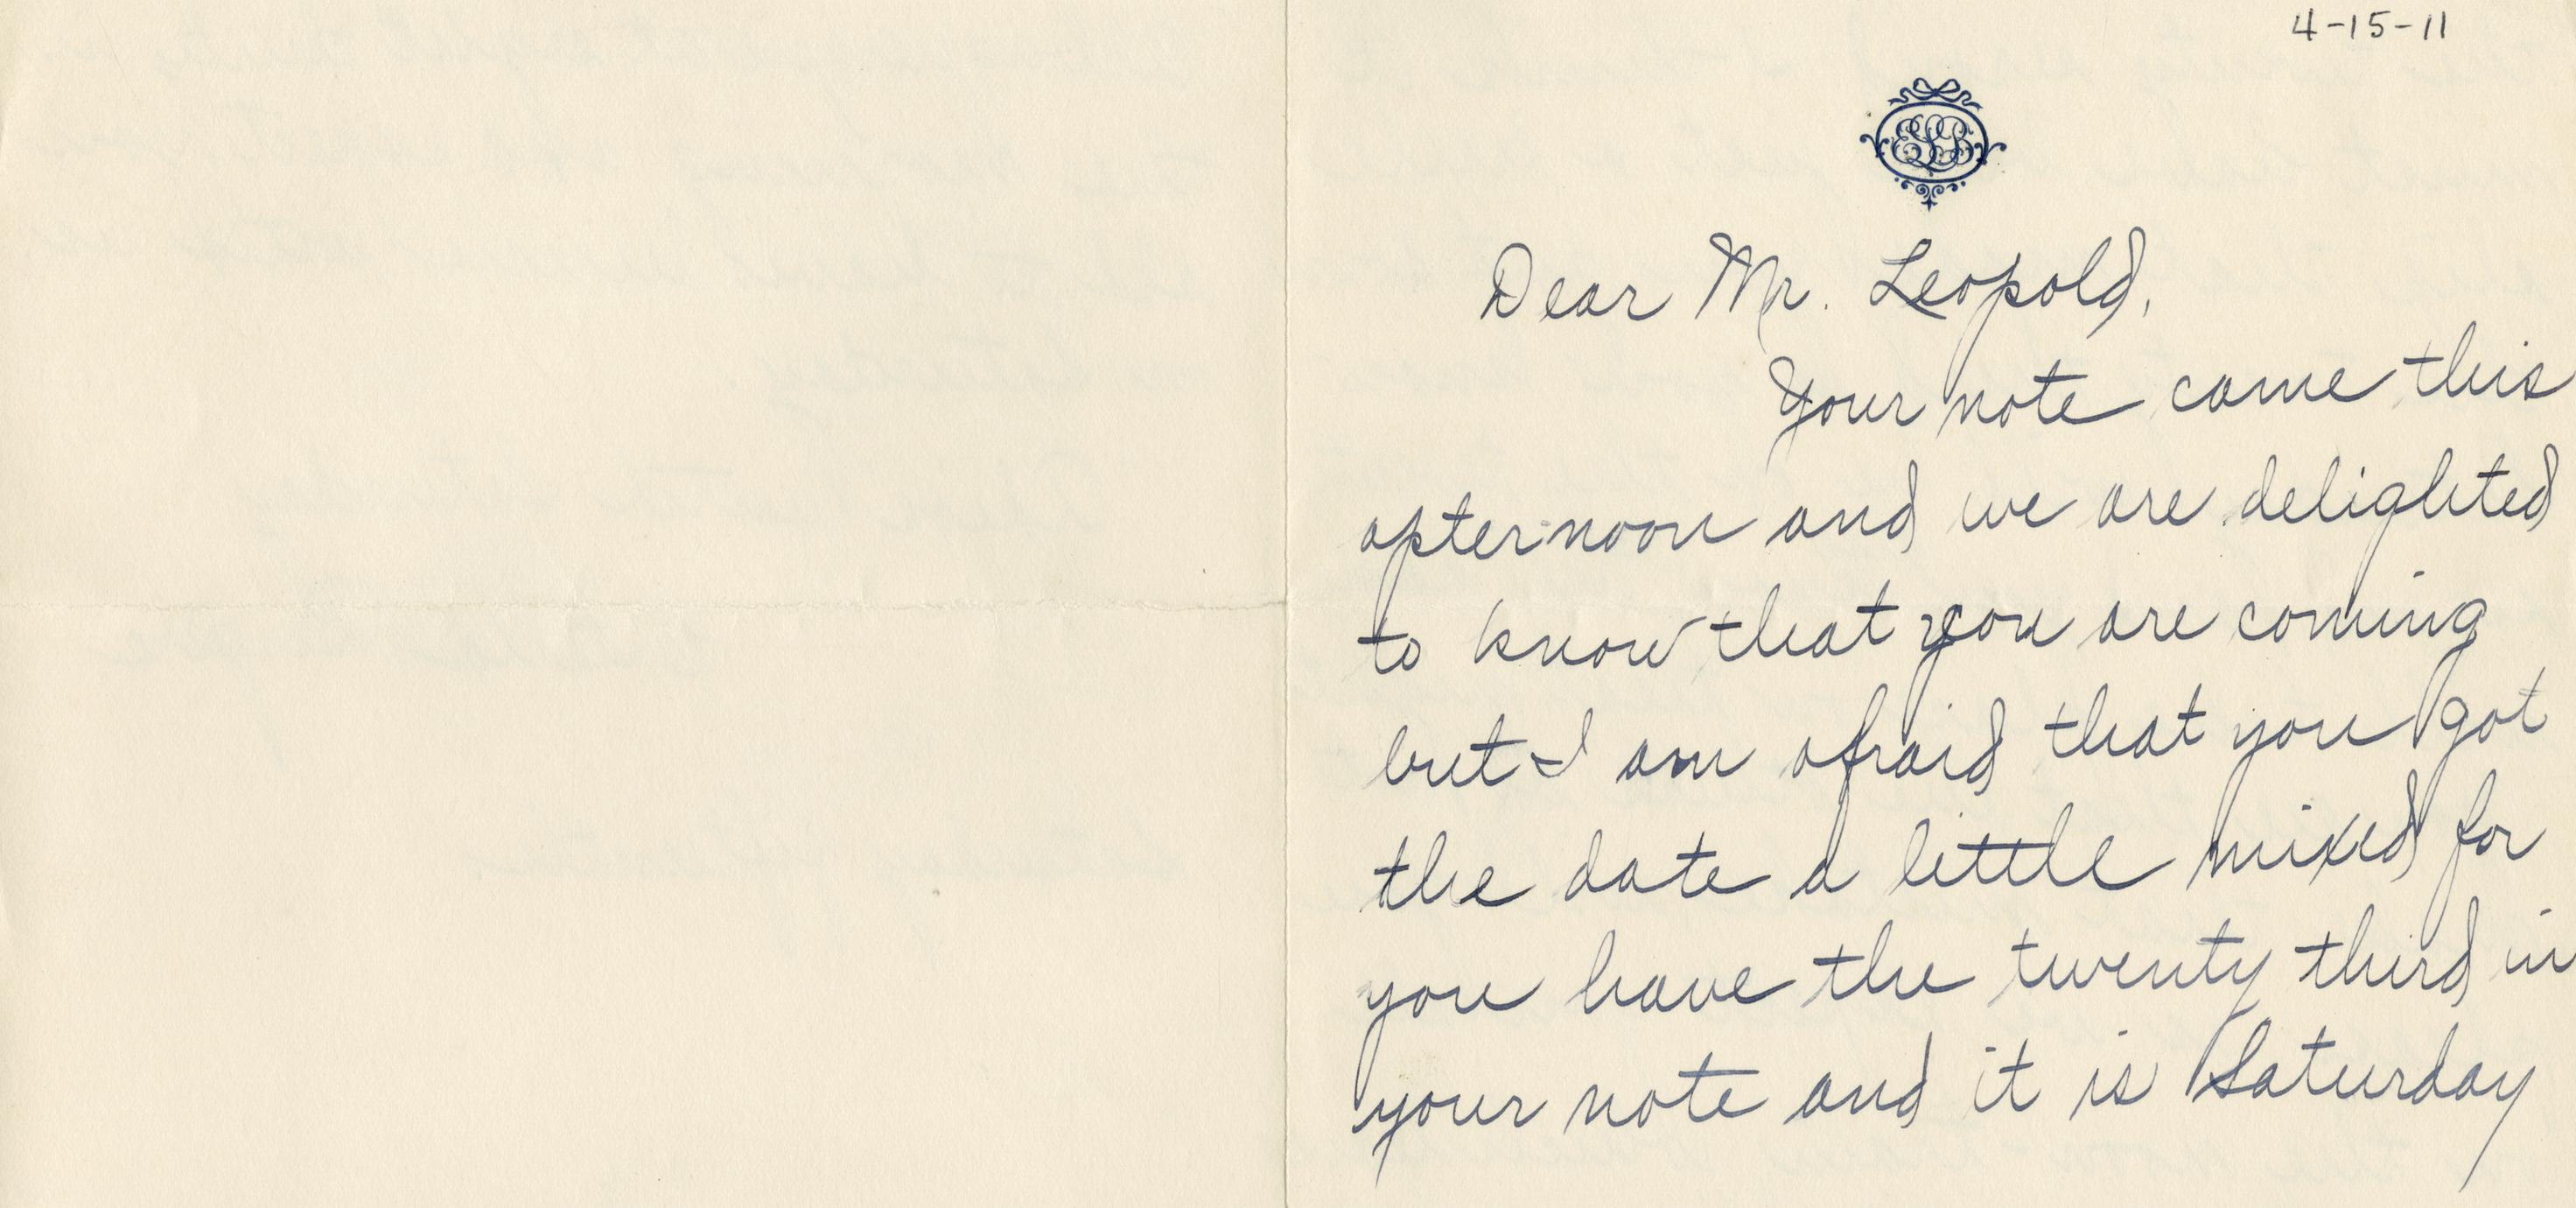 4-15-11
ELB
Dear Mr. Leopold,
Your note came this
afternoon and we are delighted
to know that you are coming
but I am afraid that you got
the date a little mixed for
you have the twenty third in
your note and it is Saturday